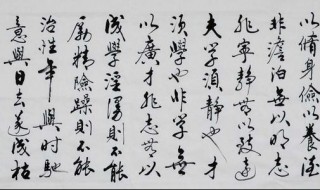 以修身儉以養德
非澹泊無以明志
非寧靜無以致遠
夫學須靜也才
須學也非學無
以廣才非志無以
成學淫漫則不能
勵精險躁則不能
治性年與時馳
意與日去遂成枯